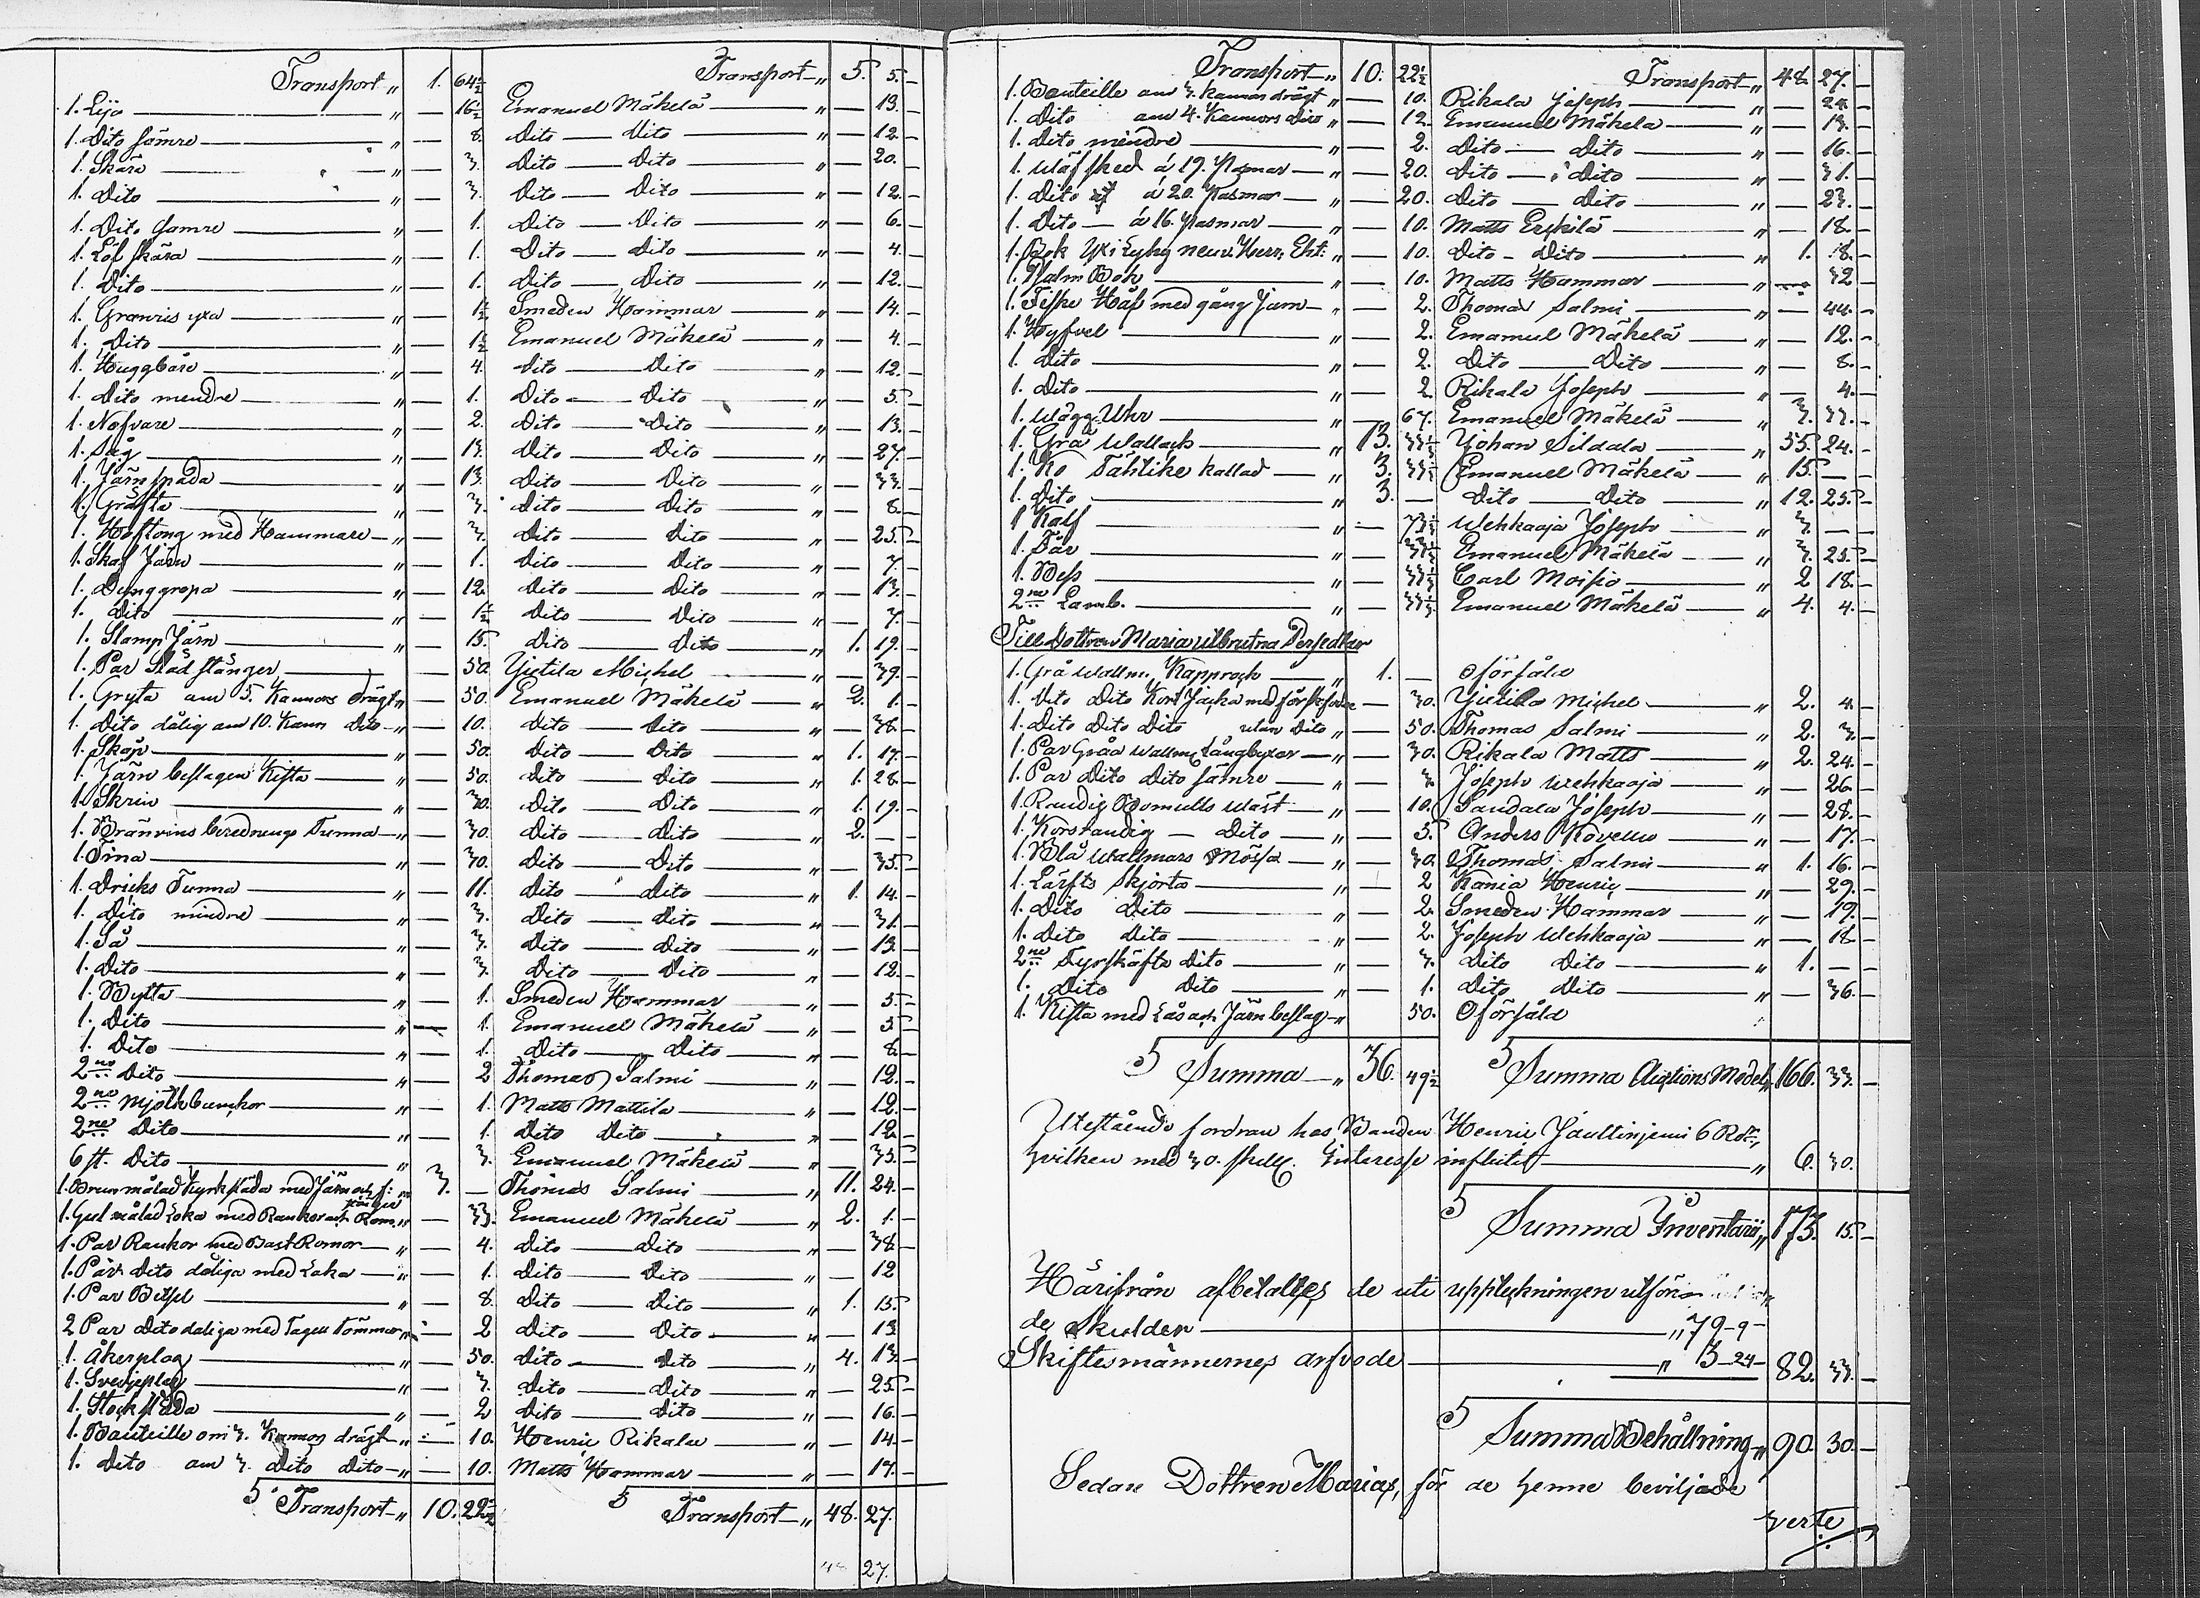 Transport „ 1. 64½ Transport „ 5. 5. –
1. Lijo „ — 16½ Emanuel Mäkelä „ — 13. –
1. Dito sämre „ — 8. dito — dito „ — 12. –
1. Skära „ — 3. dito — dito „ — 20. –
1. dito „ — 3. dito — dito „ — 12. –
1. Dito samre „ — 1. dito — dito „ — 6. –
1. Löf skära „ — 1. dito — dito „ — 4. –
1. dito „ — 1. dito — dito „ — 12. –
1. Granris yxa „ — 1½ Smeden Hammar „ — 14. –
1. dito „ — 1½ Emanuel Mäkelä „ — 4. –
1. Huggbåre „ — 4. dito — dito „ — 12. –
1. dito mendre „ — 1. dito — dito „ — 5. –
1. Nafvare „ — 2. dito — dito „ — 13. –
1. Såg „ — 13. dito — dito „ — 27. –
1. Järnspada „ — 13. dito — dito „ — 33. –
1. Gräfta „ — 3. dito — dito „ — 8. –
1. Hoftong med Hammare „ — 3. dito — dito „ — 25. –
1. Skaf Järn „ — 1. dito — dito „ — 7. –
1. Dynggrepa „ — 12. dito — dito „ — 13. –
1. dito „ — 1½ dito — dito „ — 7. –
1. Stamp Järn „ — 15. dito — dito „ 1. 19. –
1. Par Släd stänger — 50. Yietila Michel „ — 39. –
1. Gryta am 5. Kannors drägt „ — 50. Emanuel Mäkelä „ 2. 1. –
1. dito dålig am 10. Kann dito „ — 10. dito — dito „ — 38. –
1. Skåp „ — 50. dito — dito „ 1. 17. –
1. Järn beslagen Kista „ — 50. dito — dito „ 1. 28. –
1. Skrin „ — 30. dito — dito „ 1. 19. –
1. Bränvins berednings Tunna „ — 30. dito — dito „ 2. — –
1. Tina „ — 30. dito — dito „ — 35. –
1. Dricks Tunna „ — 11. dito — dito „ 1. 14. –
1. dito mindre „ — 3. dito — dito „ — 31. –
1. Så „ — 3. dito — dito „ — 13. –
1. dito „ — 3. dito — dito „ — 12. –
1. Bytta „ — 1. Smeden Hammar „ — 5. –
1. dito „ — 1. Emanuel Mäkelä „ — 5. –
1. dito „ — 1. dito — dito „ — 8. –
2ne dito „ — 2 Thomas Salmi „ — 12. –
2ne Mjölkbunkor — 1. Matts Mattila „ — 12. –
2ne dito „ — 1. dito dito „ — 12. –
6 st. dito „ — 3. Emanuel Mäkelä „ — 35. –
1. Brun målad kyrkslåda med Järn och stänger „ 3. — Thomas Salmi „ 11. 24. –
1. Gul målad Loka med Rankor och Rom. „ — 33. Emanuel Mäkelä „ 2. 1. –
1. Par Rankor med Bast Romor „ — 4. dito — dito „ — 38 –
1. Par dito dåliga med Loka „ — 1. dito — dito „ — 12 –
1. Par Betsel „ — 8. dito — dito „ 1. 15. –
2 Par dito dåliga med Tagell Tömmar „ — 2 dito — dito „ — 13 –
1. Åkerplog „ — 50. dito — dito „ 4. 13. –
1. Svedjeplog „ — 3. dito — dito „ — 25 –
1. Stockslåda „ — 2 dito — dito „ — 16. –
1. Bauteille om 3. Kannors drägt „ — 10. Henric Rikala „ — 14 –
1. dito am 3. dito dito „ — 10. Matts Hammar „ — 17. –
S Transport „ 10. 22½ S Transport „ 48. 27.
48 27.
Transport „ 10. 22½ Transport „ 48. 27. –
1. Bauteille am 3. kannors drägt „ — 10. Rikala Joseph „ — 24. –
1. dito am 4. Kannors dito „ — 12. Emanuel Mäkelä „ — 13. –
1. dito mindre „ — 2. dito — dito „ — 16. –
1. Wäfsked á 19. Pasmar „ — 20. dito — dito „ — 31. –
1. dito á 20. Pasmar „ — 20. dito — dito „ — 23. –
1. Dito — á 16. pasmar „ — 10. Matts Erkilä „ — 18. –
1. Bok Yxi Lyhy neuv. Herr. Eht: „ — 10. dito – dito „ 1. 8. –
1. Psalm Bok „ — 10. Matts Hammar „ — 32 –
1. Fiske Håf med gång Jarn „ — 2. Thomas Salmi „ — 44. –
1. Hyfvel „ — 2. Emanuel Mäkelä „ — 12. –
1. dito „ — 2. dito — dito „ — 8. –
1. dito „ — 2 Rikala Joseph „ — 4. –
1. Wägg Uhr „ — 67. Emanuel Mäkelä „ 3. 33. –
1. Grå Wallach „ 13. 33⅓ Johan Sildala „ 55. 24. –
1. Ko Tähtike kallad „ 3. 33⅓ Emanuel Mäkelä „ 15. — –
1. dito „ 3. — dito — dito „ 12. 25. –
1 Kalf „ — 33⅓ Wehkaoja Joseph „ 3. — –
1. Får „ — 33⅓ Emanuel Mäkelä „ 3. 25. –
1. Bess „ — 33⅓ Carl Moisio „ 2 18. –
2ne Lamb. „ — 33⅓ Emanuel Mäkelä „ 4. 4. –
Till Dottren Maria utbrutna Persedlar
1. Grå Wallm. Kapprock „ 1. — Oförsåld
1. dito dito Kort Jacka med förskoder — 30. Yietila Michel „ 2. 4. –
1. dito dito dito utan dito „ — 50. Thomas Salmi „ 2. 3. –
1. Par Gråa Wallm. Långbyxor „ — 30. Rikala Matts „ 2. 24. –
1. Par dito dito sämre „ — 3. Joseph Wehkaoja „ — 26 –
1. Randig Bomulls Wäst „ — 10. Sandala Joseph „ — 28. –
1. Korsrandig — dito „ — 5. Anders Kovelus „ — 17. –
1. Blå Wallmars Mössa „ — 30. Thomas Salmi „ 1. 16. –
1. Lärfts Skjorta „ — 2 Kania Henric „ — 29. –
1. dito dito „ — 2. Smeden Hammar „ — 19. –
1. dito dito „ — 2. Joseph Wehkaoja „ — 18 –
2ne Fyrskäfta dito „ — 3. dito dito „ 1. — –
1. dito dito „ — 1. dito dito „ — 36. –
1. Kista med Lås och Järn beslag „ 50. Oförsåld
S Summa „ 36. 49½ S Summa Auctions Medel „ 166. 33. –
Utestående fordran hos Bonden Henric Jaultinjemi 6 Rdr.,
hvilken med 30. skell. Interesse influtit „ 6. 30.
S Summa Inventarii „ 173. 15. –
Härifrån afbetaltes de uti uppteckningen utför
de Skulder „ 79 – 9 –
Skiftesmännernes arfvode „ 3 – 24 – 82. 33. –
S Summa Behållning „ 90. 30. –
Sedan Dottren Marias, för de henne beviljade
verte